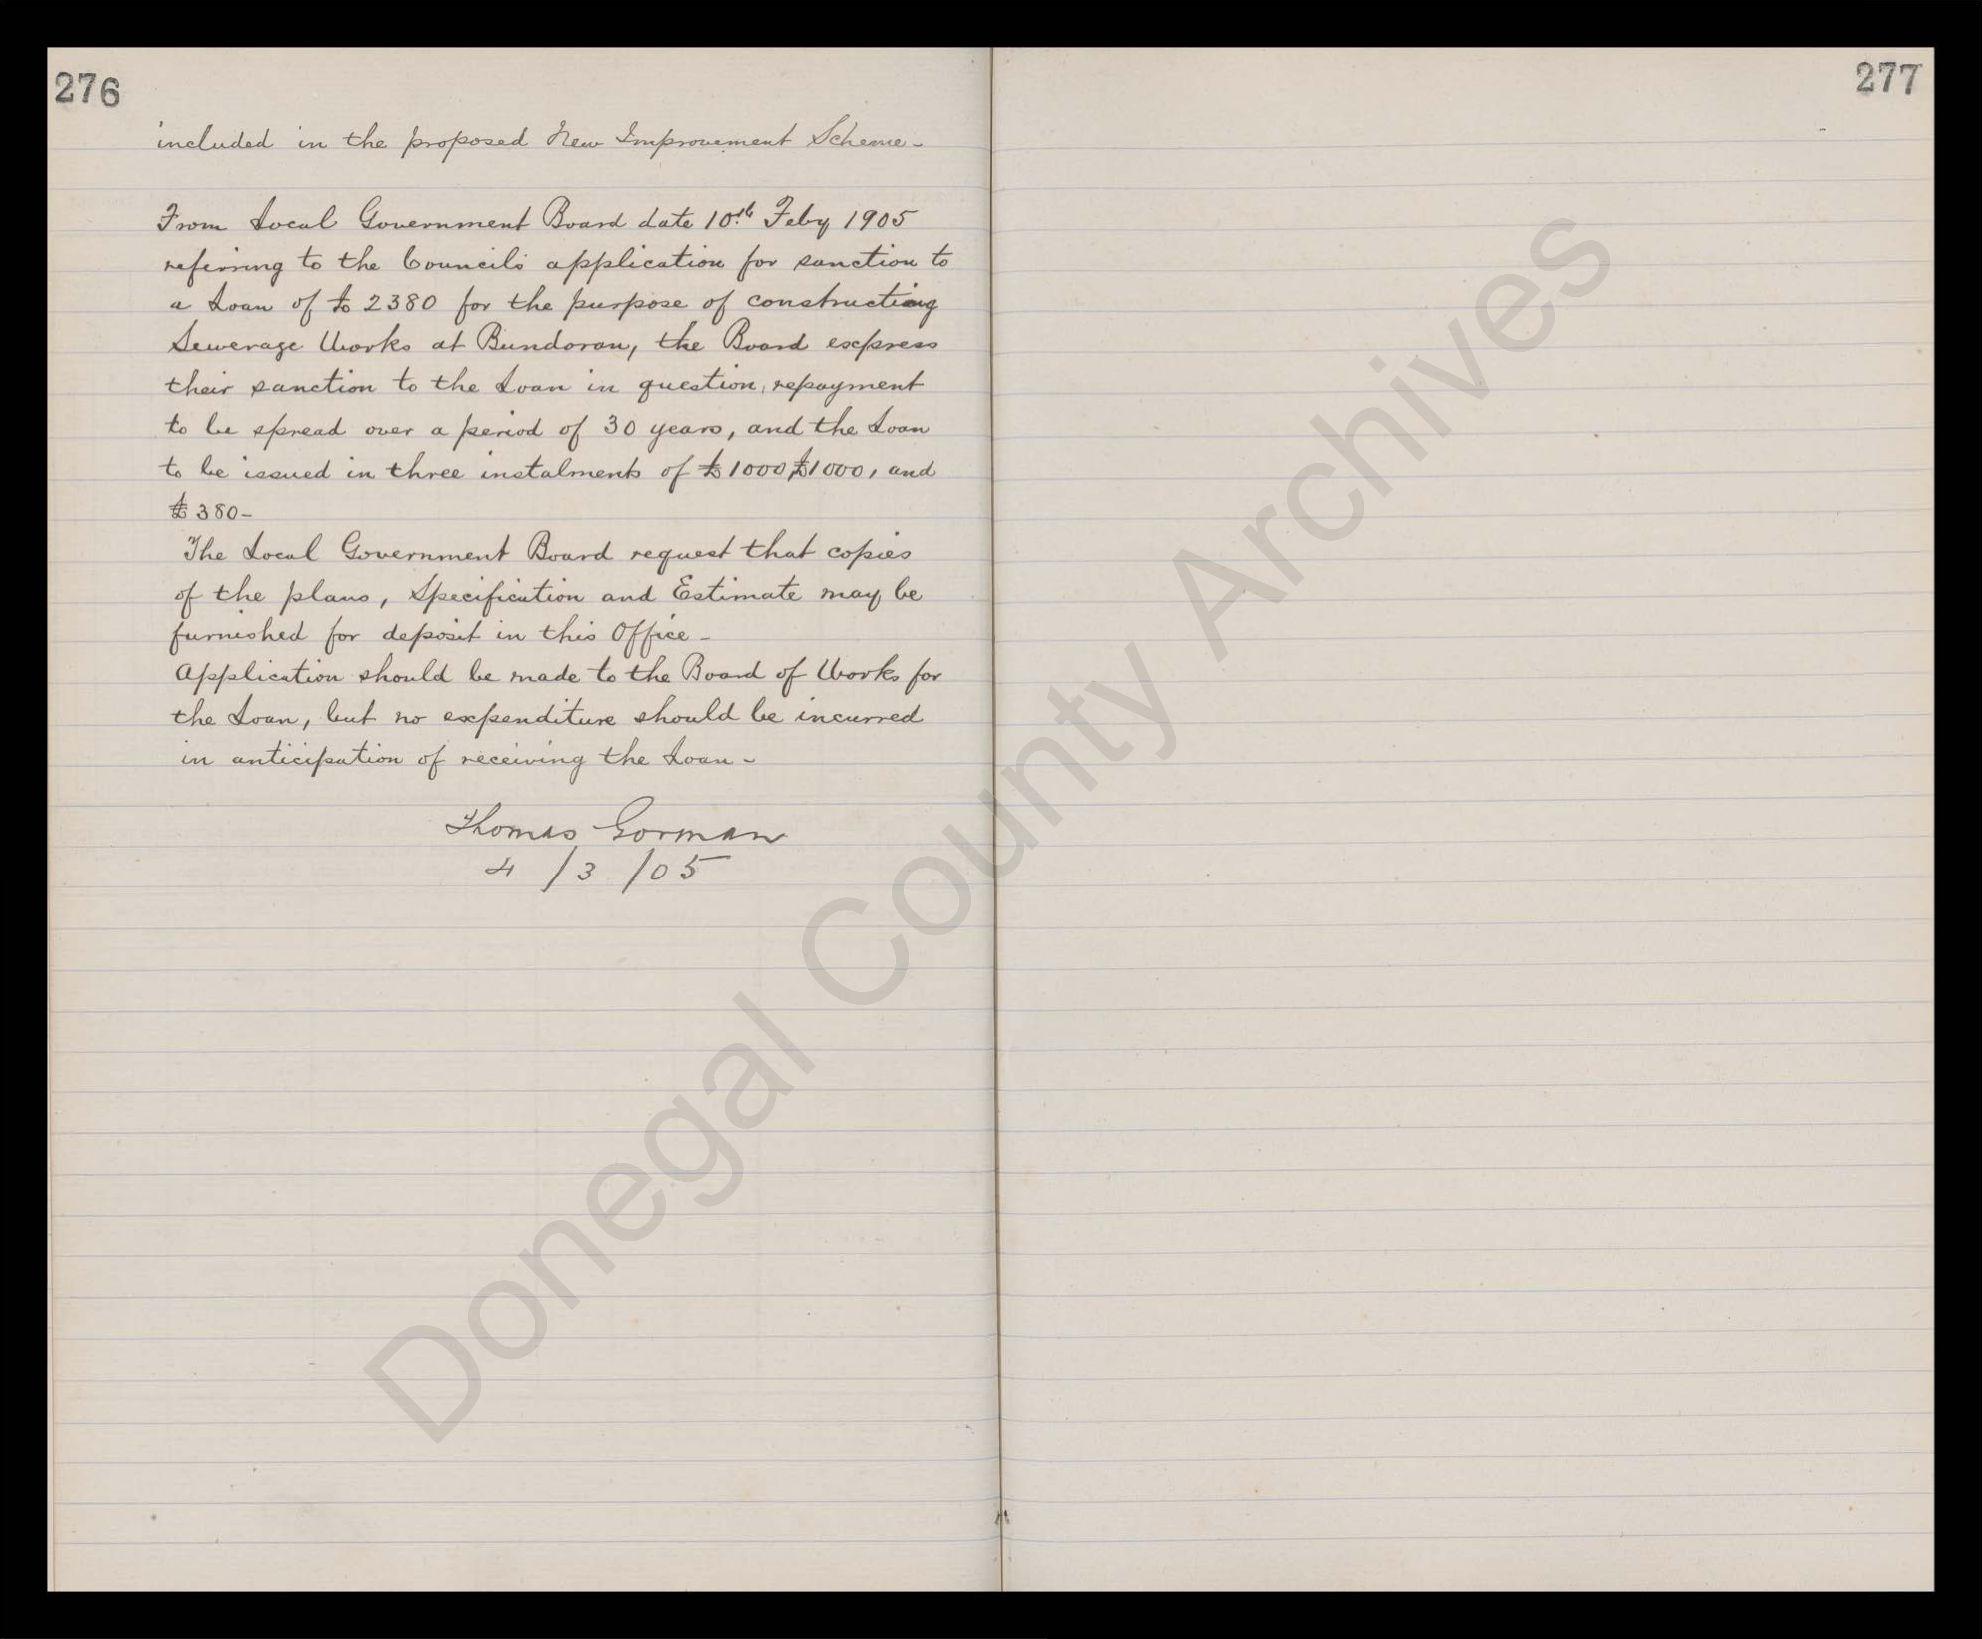 276
included in the proposed New Improvement Scheme-
From Local Government Board date 10th Feby 1905
referring to the Council's application for sanction to
a Loan of £2380 for the purpose of constructing
Sewerage Works at Bundoran, the Board express
their sanction to the Loan in question, repayment
to be spread over a period of 30 years, and the Loan
to be issued in three instalments of £1000, £1000, and
£380-
The Local Government Board request that copies
of the plans, Specification and Estimate may be
furnished for deposit in this Office-
Application should be made to the Board of Works for
the Loan, but no expenditure should be incurred
in anticipation of receiving the Loan-
Thomas Gorman
4/3/05
277
Donegal County Archives